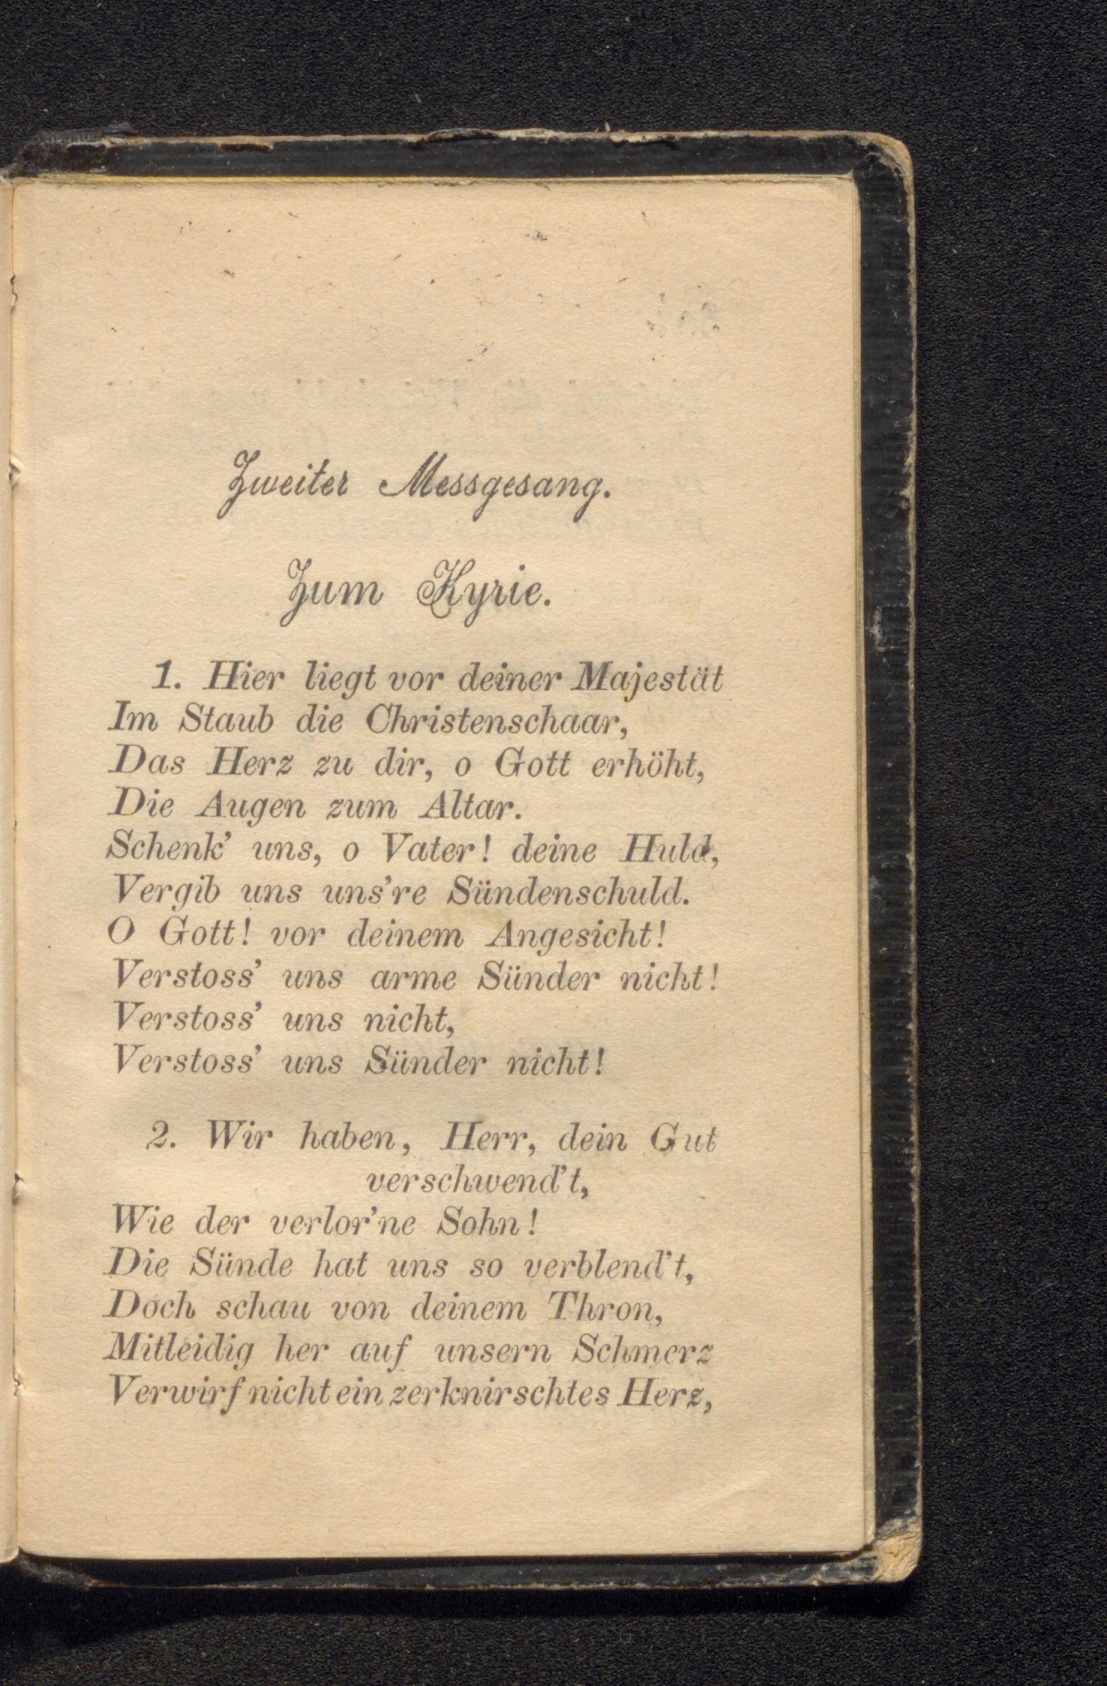 Zweiter Messgesang.
Zum Kyrie.
1. Hier liegt vor deiner Majestät
Im Staub die Christenschaar,
Das Herz zu dir, o Gott erhöht,
Die Augen zum Altar.
Schenk’ uns, o Vater! deine Huld,
Vergib uns uns’re Sündenschuld.
O Gott! vor deinem Angesicht!
Verstoss’ uns arme Sünder nicht!
Verstoss’ uns nicht,
Verstoss’ uns Sünder nicht!
2. Wir haben, Herr, dein Gut
verschwend’t,
Wie der verlor’ne Sohn!
Die Sünde hat uns so verblend’t,
Doch schau von deinem Thron,
Mitleidig her auf unsern Schmerz
Verwirf nicht ein zerknirschtes Herz,